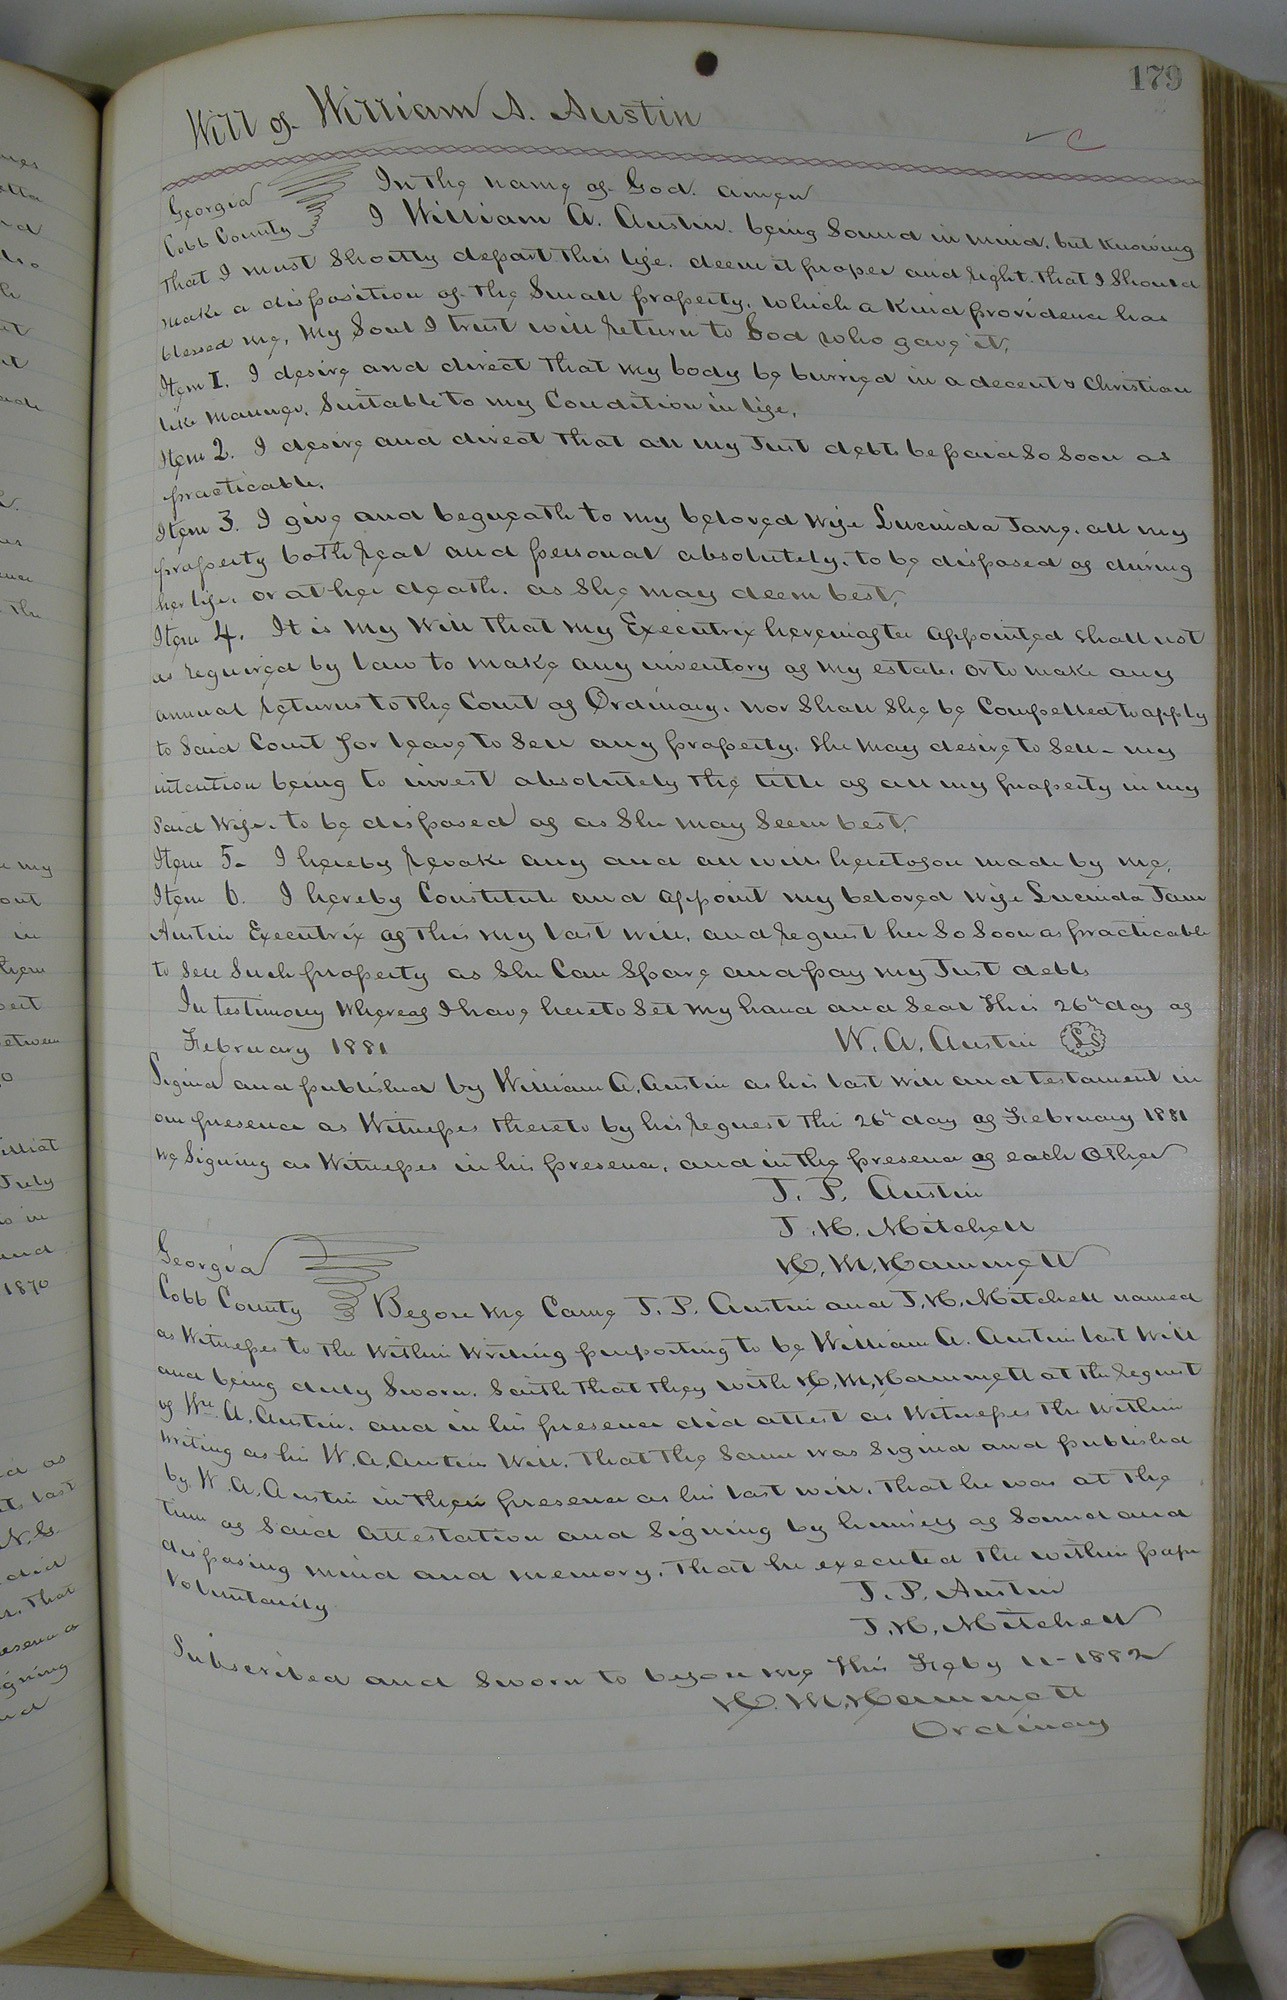 179
Will of William A. Austin
Georgia
Cobb County
In the name of God. amen
I William A. Austin. being Sound in mind. but Knowing
that I must Shortly depart this life. deem it proper and right that I Should
make a disposition of the Small property. which a Kind providence has
blessed me, My Soul I trust will return to God who gave it,
Item 1. I desire and direct that my body be burried in a decent & Christian
like manner. Suitable to my Condition in life.
Item 2. I desire and direct that all my Just debts be paid So Soon as
practicable.
Item 3. I give and bequeath to my beloved wife Lucinda Jane. all my
property both real and personal absolutely. to be disposed of during
her life. or at her death. as She may deem best.
Item 4. It is my will that my Executrix hereinafter appointed shall not
as required by law to make any inventory of my estate. or to make any
annual returns to the Court of Ordinary. nor Shall She be Compelled to apply
to Said Court for leave to Sell any property. She may desire to Sell - my
intention being to invest absolutely the title of all my property in my
Said Wife. to be disposed of as She may Seem best.
Item 5- I hereby revoke any and all wills heretofore made by me.
Item 6. I hereby Constitute and appoint my beloved wife Lucinda Jane
Austin Executrix of this my last will. and request her So Soon as practicable
to Sell Such property as She Can Spare and pay my Just debts
In testimony whereof I have hereto Set my hand and Seal this 26th day of
February 1881 W. A. Austin LS
Signed and published by William A. Austin as his last will and testament in
our presence as Witnesses thereto by his request this 26th day of February 1881
we Signing as Witnesses in his presence. and in the presence of each Other
J. P. Austin
J. H. Mitchell
H. M. Hammett
Georgia
Cobb County Before me Came J. P. Austin and J. H. Mitchell named
as Witnesses to the Within Writing purporting to be William A. Austin last Will
and being duly Sworn. Saith that they with H. M. Hammett at the request
of Wm A. Austin. and in his presence did attest as Witnesses the Within
writing as his W. A. Austin Will. that the Same was Signed and published
by W. A. Austin in their presence as his last will. that he was at the
time of Said attestation and Signing by himself of Sound and
disposing mind and memory. That he executed the within paper
Voluntarily
J. P. Austin
J. H. Mitchell
Subscribed and Sworn to before me this Feby 11-1882
H. M. Hammett
Ordinary